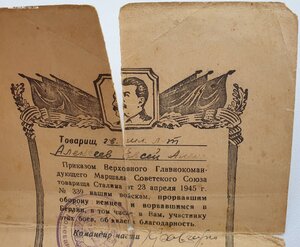 Товарищ
Алексеев
Приказом Верховного Главнокоман-
дующего Маршала Советского Союза
товарища Сталина от 23 апреля 1945 г.
№ 339 нашим войскам, прорвавшим
оборону немцев и ворвавшимся в
Берлин, в том числе и Вам, участнику
этих боев, объявлена благодарность.
Командир части